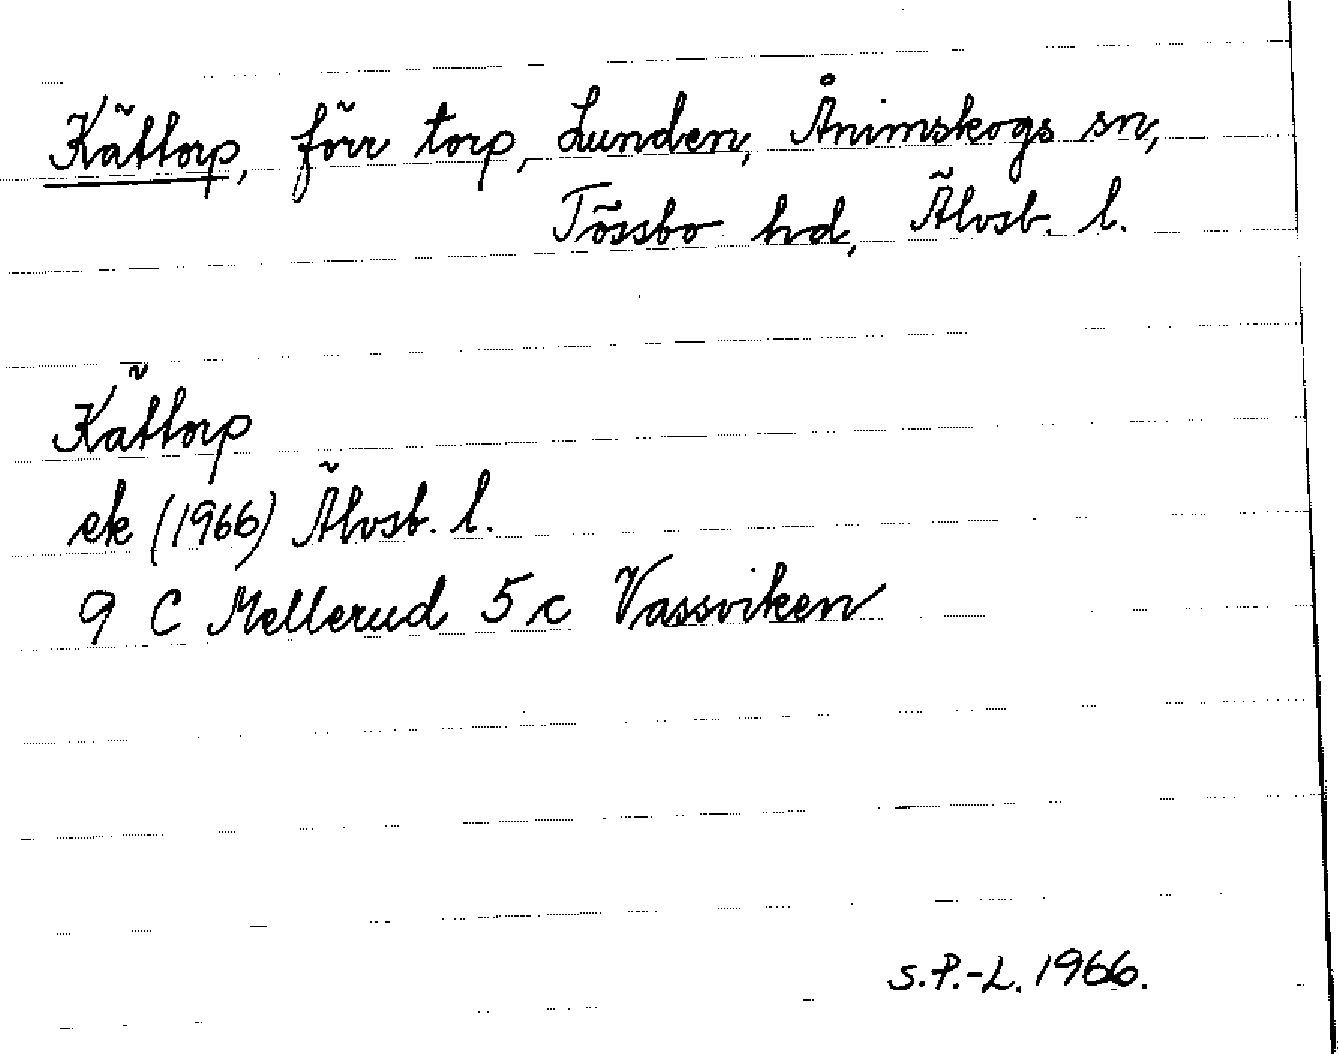 Kättorp, förr torp, Lunden, Ånimskogs sn,
Tössbo hd, Älvsb. l.
Kättorp
ek (1966) Älvsb. l.
9 C Mellerud 5 c Vassviken
S.P.-L. 1966.